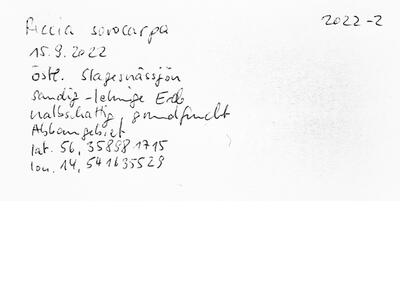 Riccia sorocarpa
2022-2
15.9.2022
östl. Slagesnässjön
sandig-lehmige Erde
halbschattig, grundfeucht
Abbaugebiet
lat. 56,35898 1715
lon. 14,541635529